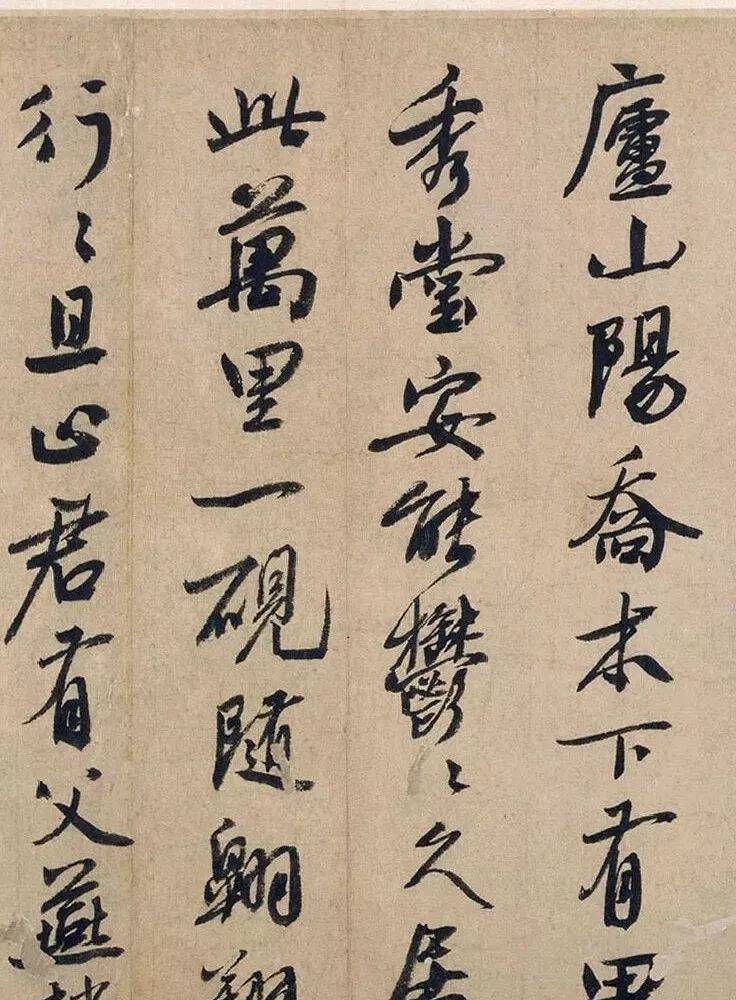 廬山陽喬木下有異
秀堂安能鬱〻久居
此萬里一硯隨翺翔
行〻且止君有父燕